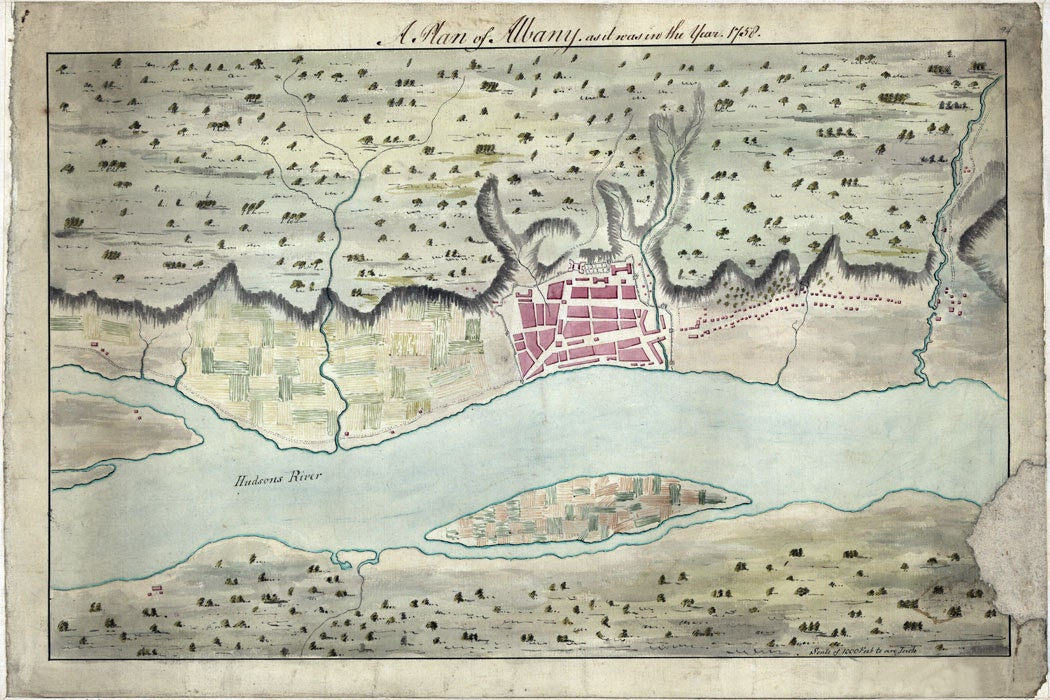 A Plan of Albany, as it was in the Year. 1758.
Hudsons River
Scale of 1000 Feet to an Inch